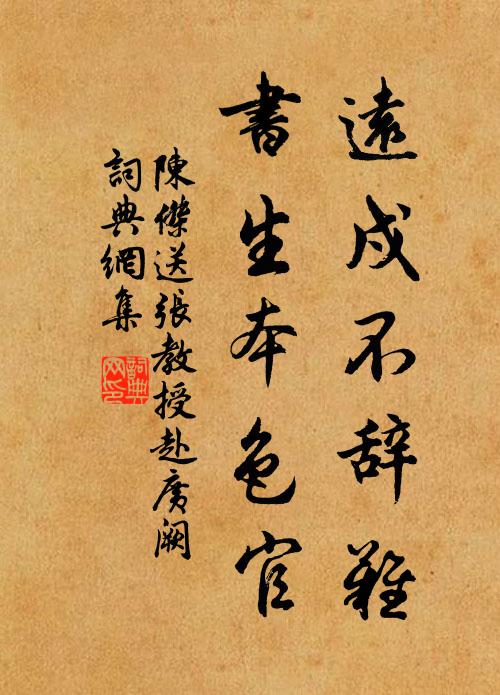 遠戍不辞難
書生本色官
陳傑送張教授赴廣闕
詞典網集
詞典
网印